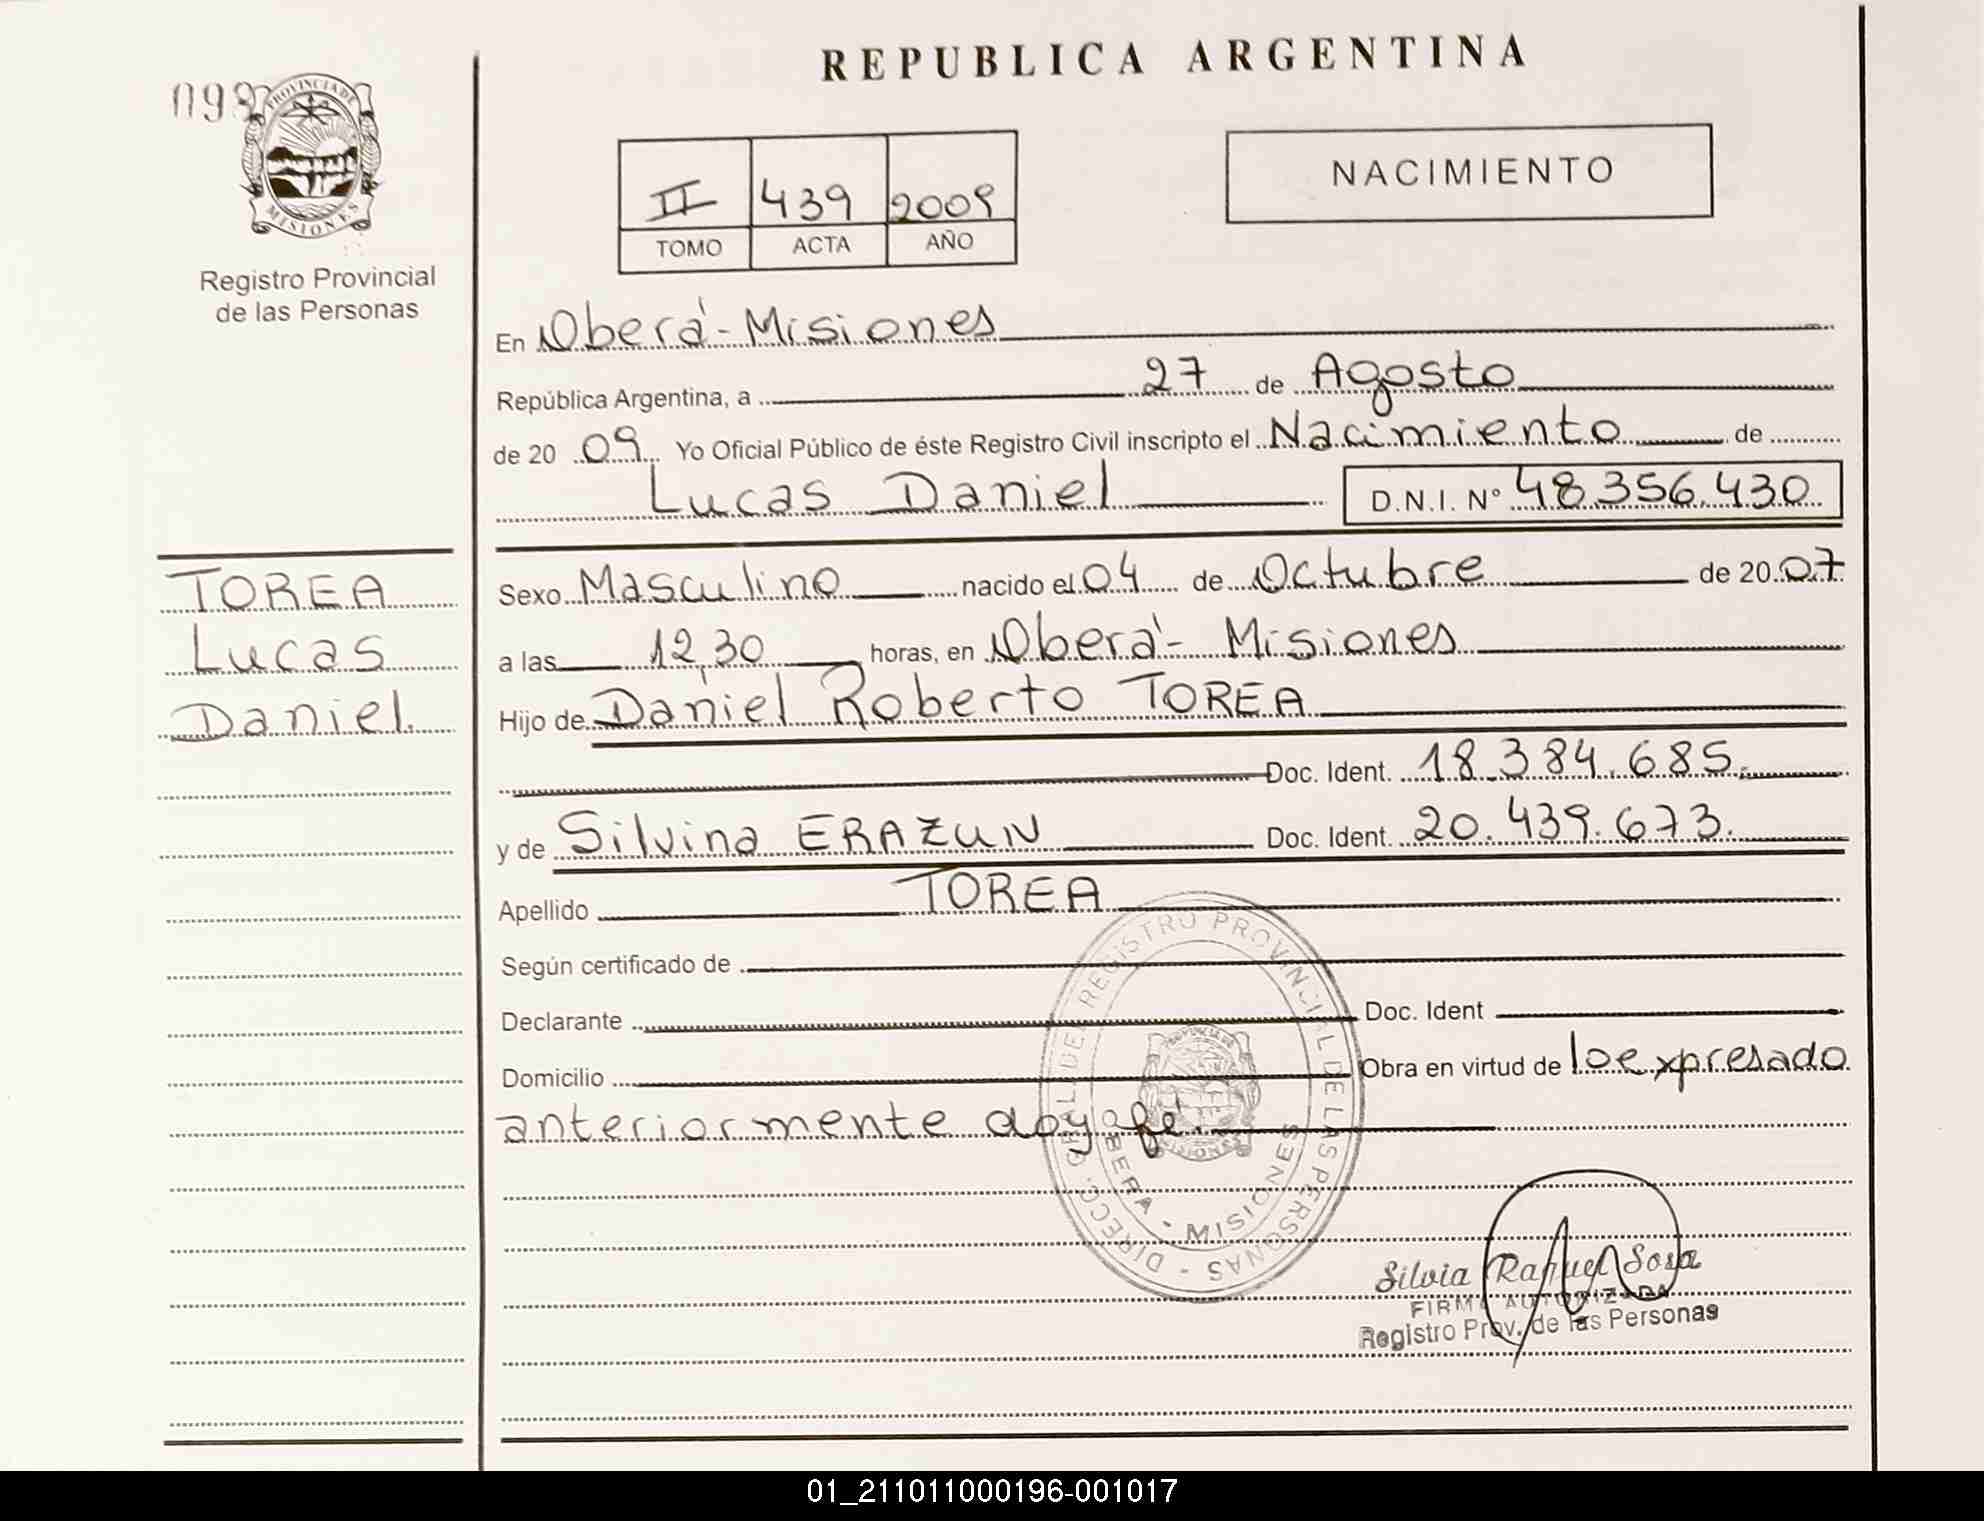 REPUBLICA ARGENTINA
093
PROVINCIA DE
MISIONES
Registro Provincial
de las Personas
II 439 2009
TOMO ACTA AÑO
NACIMIENTO
En Oberá - Misiones
República Argentina, a 27 de Agosto
de 20 09 Yo Oficial Público de éste Registro Civil inscripto el Nacimiento de
Lucas Daniel D.N.I. Nº 48.356.430
TOREA
Lucas
Daniel.
Sexo Masculino nacido el 04 de Octubre de 20 07
a las 12,30 horas, en Oberá - Misiones
Hijo de Daniel Roberto TOREA
Doc. Ident. 18.384.685.
y de Silvina ERAZUN Doc. Ident. 20.439.673.
Apellido TOREA
Según certificado de
Declarante Doc. Ident
Domicilio Obra en virtud de lo expresado
anteriormente doy fé.
DIRECC. GRAL. DEL REGISTRO PROVINCIAL DE LAS PERSONAS -
OBERA - MISIONES
Silvia Raquel Sosa
FIRMA AUTORIZADA
Registro Prov. de las Personas
01_211011000196-001017